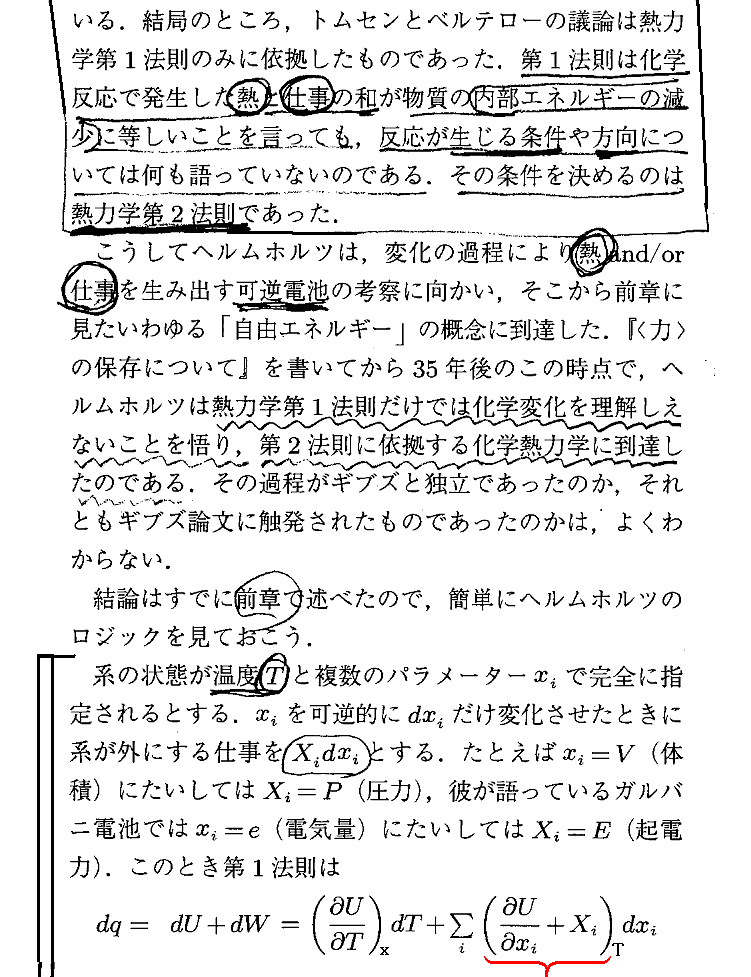 いる．結局のところ，トムセンとベルテローの議論は熱力
学第1法則のみに依拠したものであった．第1法則は化学
反応で発生した熱と仕事の和が物質の内部エネルギーの減
少に等しいことを言っても，反応が生じる条件や方向につ
いては何も語っていないのである．その条件を決めるのは
熱力学第2法則であった．
こうしてヘルムホルツは，変化の過程により熱 and/or
仕事を生み出す可逆電池の考察に向かい，そこから前章に
見たいわゆる「自由エネルギー」の概念に到達した．『〈力〉
の保存について』を書いてから35年後のこの時点で，ヘ
ルムホルツは熱力学第1法則だけでは化学変化を理解しえ
ないことを悟り，第2法則に依拠する化学熱力学に到達し
たのである．その過程がギブズと独立であったのか，それ
ともギブズ論文に触発されたものであったのかは，よくわ
からない．
結論はすでに前章で述べたので，簡単にヘルムホルツの
ロジックを見ておこう．
系の状態が温度 T と複数のパラメーター x_i で完全に指
定されるとする．x_i を可逆的に dx_i だけ変化させたときに
系が外にする仕事を X_i dx_i とする．たとえば x_i = V（体
積）にたいしては X_i = P（圧力），彼が語っているガルバ
ニ電池では x_i = e（電気量）にたいしては X_i = E（起電
力）．このとき第1法則は
dq = dU + dW = (∂U/∂T)_x dT + ∑_i (∂U/∂x_i + X_i)_T dx_i